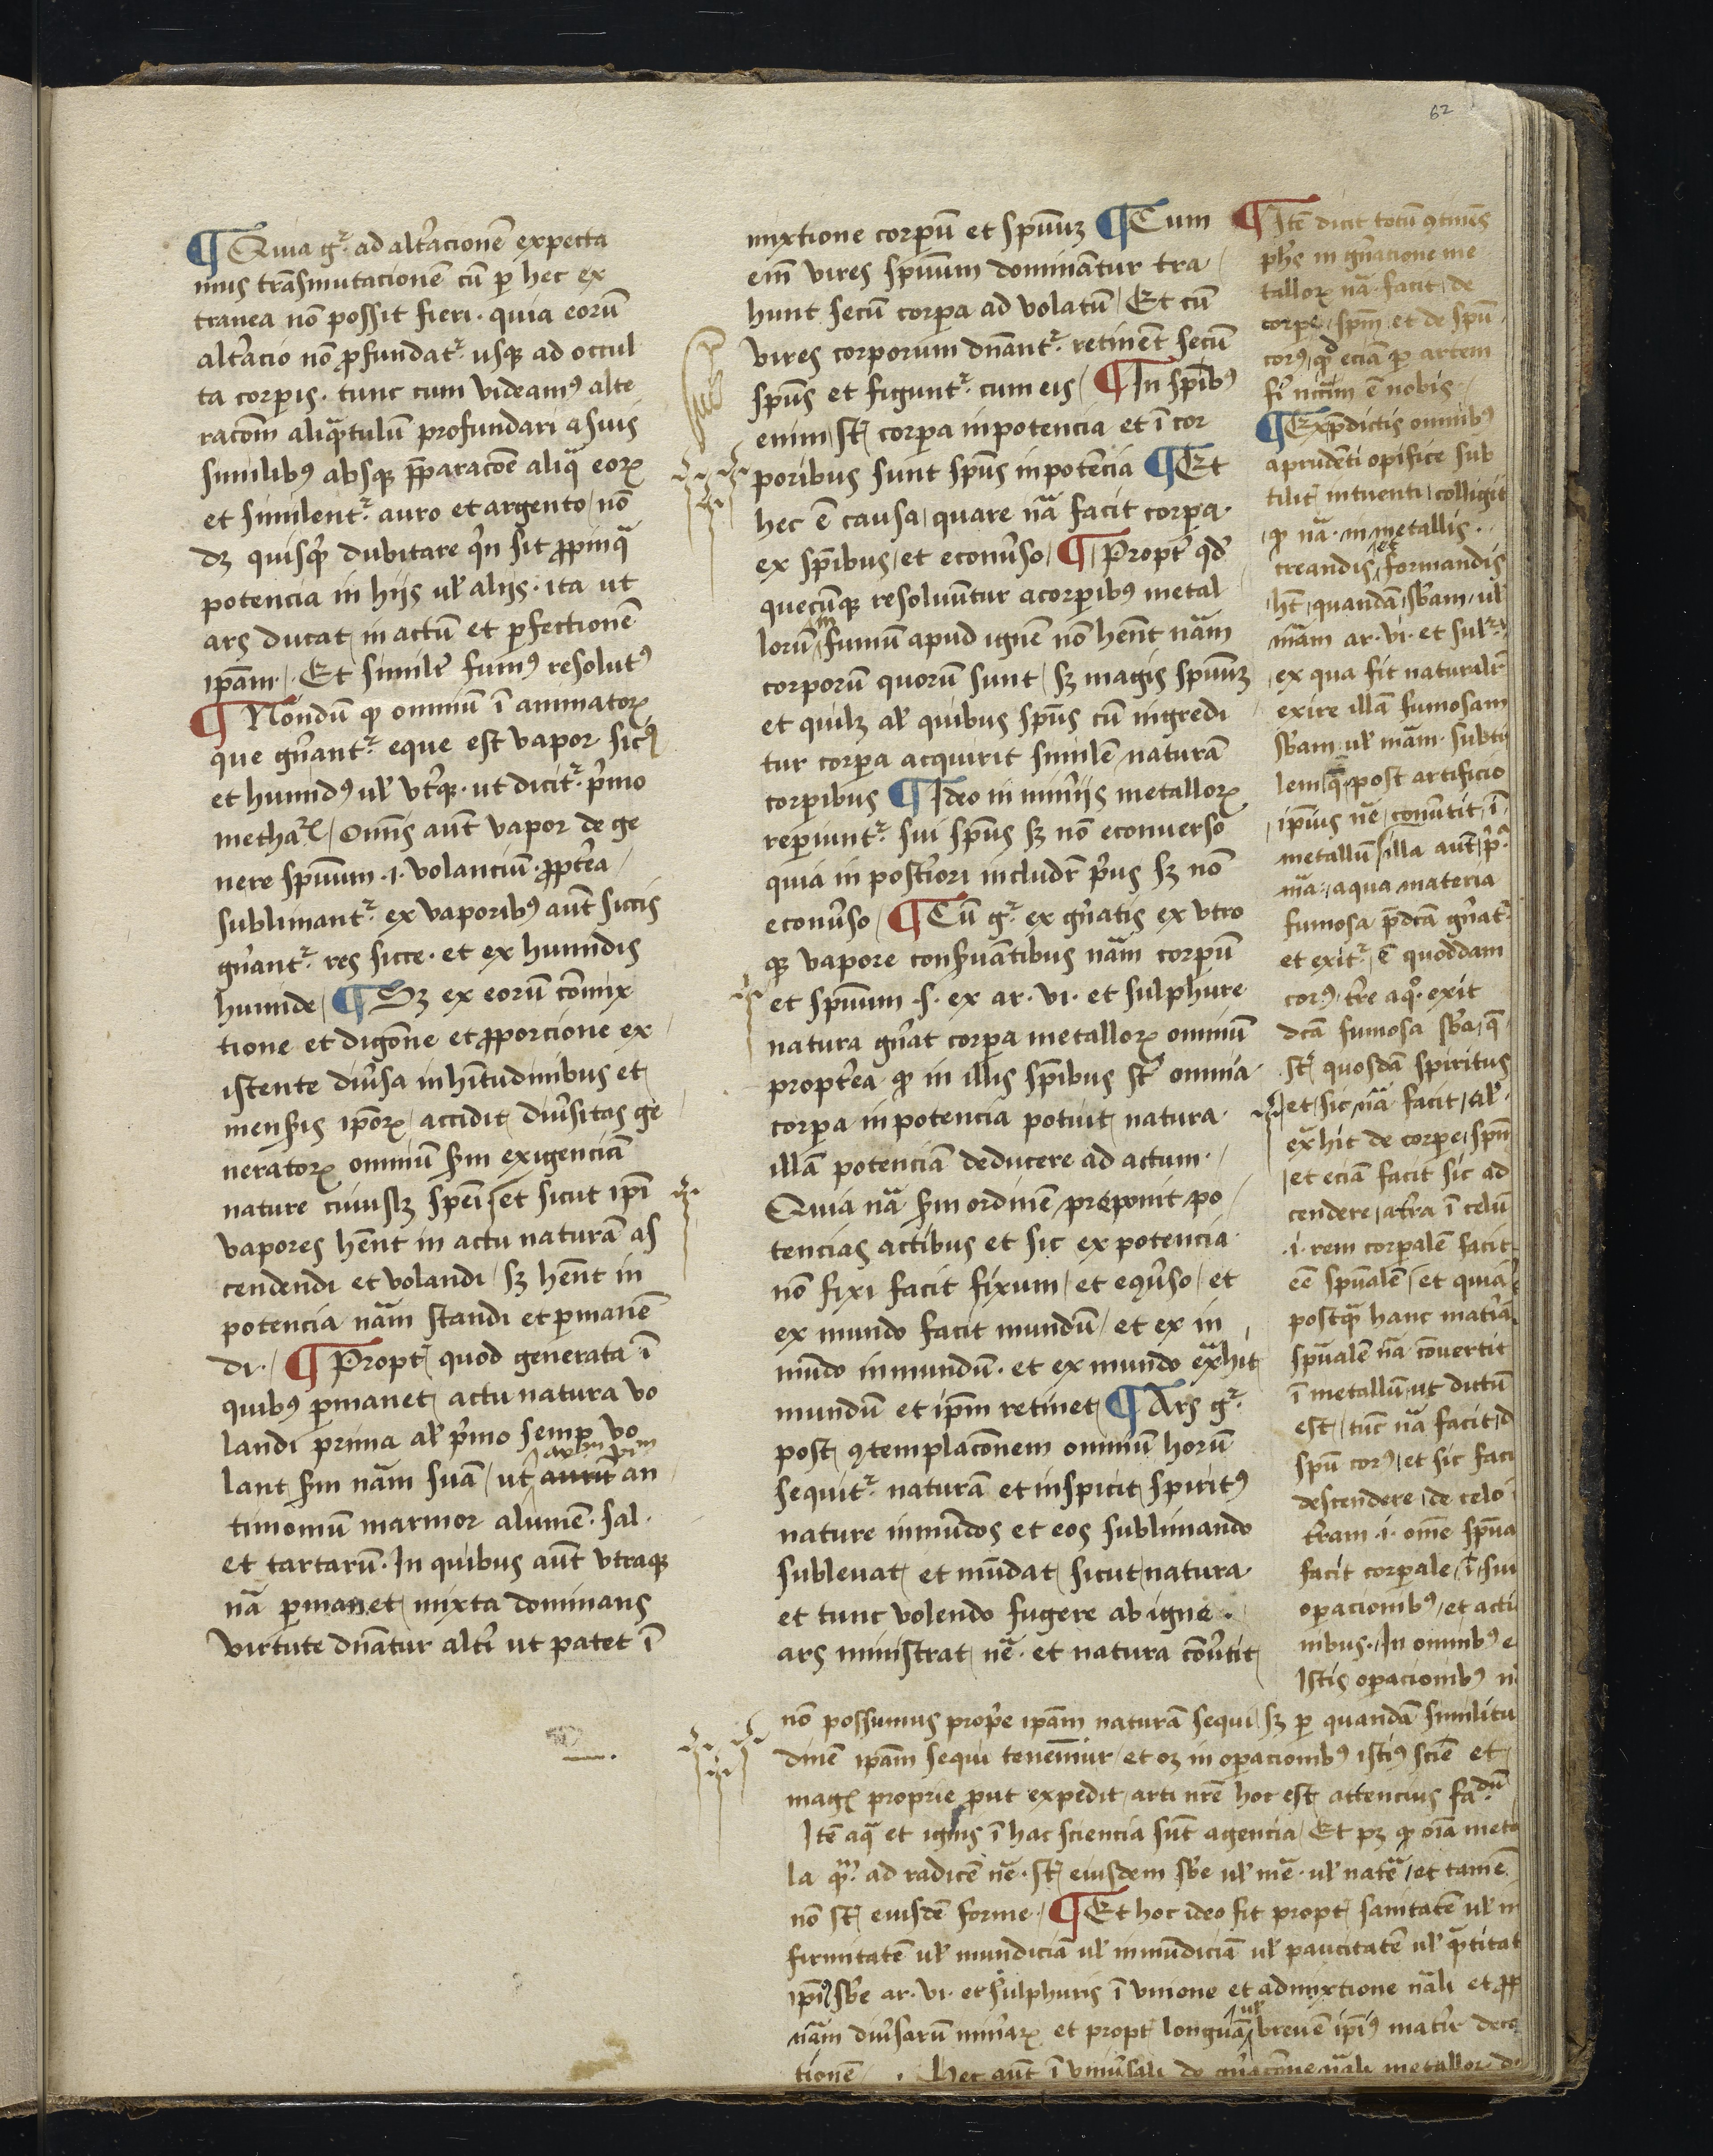 62
¶ Quia gͬ ad altʾacionē expecta
mus trāsmutacionē cū ꝑ hec ex
tranea nō possit fieri · quia eorū
altʾacio nō ꝓfundatͬ usqꝫ ad occul
ta corꝑis · tunc cum videamꝰ alte
racōm aliqᵃtulū profundari a suis
similibꝰ absqꝫ p̄ꝑaracōe aliqᵃ eorꝝ
et similentͬ auro et argento / nō
dꝫ quisqꝫ dubitare qʾn sit ꝓpinqᵃ
potencia in hijs uł alijs · ita ut
ars ducat in actū et ꝑfectionē
ip̄am · / · Et similʾr fumꝰ resolutꝰ
¶ Nōndū ꝙ omniū ī animatorꝝ
que gn̄antͬ eque est vapor siccꝰ
et humidꝰ uł vtʾqꝫ · ut dicitͬ pʾmo
methaꝝ / Om̄is aūt vapor de ge
nere spūum · i · volanciū · ꝓptʾea /
sublimantͬ ex vaporibꝰ aūt siccis
gn̄antͬ res sicce · et ex humidis
humide / ¶ Sꝫ ex eorū cōmix
tione et digōne et ꝓporcione ex /
istente diuʾsa in hītudinibus et
mensʾis ip̄orꝝ / accidit diuʾsitas ge
neratorꝝ omniū sᵐ exigenciā
nature cuiuslꝫ spēi / et sicut ip̄i
vapores hēnt in actu naturā as
cendendi et volandi / sꝫ hēnt in
potencia nām standi et ꝑmanē
di · / ¶ Proptʾ quod generata ī
quibꝰ ꝑmanet actu natura vo
landi prima ał pʾmo semꝑ vo
lant sᵐ nām suā / ut an
timoniū marmor alumē · sal ·
et tartarū · In quibus aūt vtraqꝫ
nā ꝑmanet mixta dominans
virtute dn̄atur altʾi ut patet ī
mixtione corꝑū et spūuꝫ ¶ Cum
em̄ vires spūum dominātur tra /
hunt secū corꝑa ad volatū / Et cū
vires corporum dn̄antͬ retinēt secū
spūs et figuntͬ cum eis / ¶ In spībꝰ
enim / stʾ corꝑa in potencia et ī cor
poribus sunt spūs in potēcia ¶ Et
hec ē causa / quare nā facit corꝑa ·
ex spībus / et econuʾso / ¶ Proptʾ qd̄
quecūqꝫ resoluūtur a corꝑibꝰ metal
lorū in fumū apud ignē nō hēnt nām
corporū quorū sunt / sꝫ magis spūuꝫ
et quilꝫ ał quibus spūs cū ingredi
tur corꝑa acquirit similē naturā
corꝑibus ¶ Ideo in minʾijs metallorꝝ
reꝑiuntͬ sui spūs sꝫ nō econuerso
quia in postʾiori includrʾ pʾus sꝫ nō
econuʾso / ¶ Cū gͬ ex gn̄atis ex vtro
qꝫ vapore consʾuātibus nām corꝑū
et spūum · s · ex ar · vi · et sulphure
natura gn̄at corꝑa metallorꝝ omniū
proptʾea ꝙ in illis spībus stʾ omnia ·
corꝑa in potencia potuit natura ·
illā potenciā deducere ad actum ·
Quia nā sᵐ ordinē preponit po /
tencias actibus et sic ex potencia
nō fixi facit fixum / et eꝯuʾso / et
ex mundo facit mundū / et ex in
mūdo inmundū · et ex mundo exᵃhit
mundū et ip̄m retinet ¶ Ars gͬ
post ꝯtemplacōnem omniū horū
sequitͬ naturā et inspicit spiritꝰ
nature inmūdos et eos sublimando
subleuat et mūdat sicut natura
et tunc volendo fugere ab igne ·
ars ministrat nē · et natura cōuʾtit
¶ Itē dicit totū ꝯtinēs
ph̄s in gn̄acione me
tallorꝝ nā · facit / de
corꝑe / spm̄ / et de spū ·
corꝰ / qd̄ eciā ꝑ artem
fi nc̄cm ē nobis ·
¶ Ex p̄dictis omnibꝰ
a prudēti opifice sub
tilitʾ intuenti / colligit
ꝙ nā · in metallis ·
creandis / et formandis
ht̄ / quandā / sb̄am / uł
mām ar · vi · et sulͬ
ex qua fit naturalrʾ
exire illā fumosam
sb̄am uł mām · subti
lem / qᵃ post artificio
ip̄ius nē / conuʾtit / ī
metallū / illa aūt / pʾᵃ
mā · / a qua materia
fumosa p̄dcā gn̄atͬ
et exitͬ / ē quoddam
corꝰ · tʾre aqꝫ exit
dcā fumosa sb̄a / qᵉ
stʾ quosdā spiritus
et / sic nā facit / ał ·
exᵃhit de corꝑe / spm̄
et eciā facit sic ad
cendere / a tʾra ī celū
· i · rem corꝑalē facit
eē spūalē / et quia
postqᵃ hanc matʾiā
spūalē nā cōuertit
ī metallū / ut dictū
est / tūc nā facit / d
spū corꝰ / et sic faci
descendere / de celo ī
tʾram · i · om̄e spūa
facit corꝑale / ī / sui
oꝑacionibꝰ / et acti
nibus · / In omnibꝰ e
Istis oꝑacionibꝰ n
nō possumus propʾe ip̄am naturā sequi / sꝫ ꝑ quandā similitu
dinē ip̄am sequi tenemur / et oꝫ in oꝑacionibꝰ istiꝰ sciē et
magꝭ proprie ꝓut expedit / arti nr̄e hoc est attencius faᵈū
Itē aqᵃ et ignis ī hac sciencia sūt agencia / Et pꝫ ꝙ oīa meta
la qᵐ ad radicē nē · stʾ eiusdem sb̄e uł mē · uł natᵉ / et tamē
nō stʾ eiusdē forme · / ¶ Et hoc ideo fit proptʾ sanitatē uł in
firmitatē uł mundiciā uł inmūdiciā uł paucitatē uł qᵃtitat
ip̄iꝰ sb̄e ar · vi · et sulphuris ī vnione et admixtione nāli et ꝓp
nām diuʾsarū minʾarꝝ et proptʾ longuā uł breuē ip̄iꝰ matʾie deco
tionē / · Hec aūt ī vniuʾsali de gn̄acōne nāli metallorꝝ d